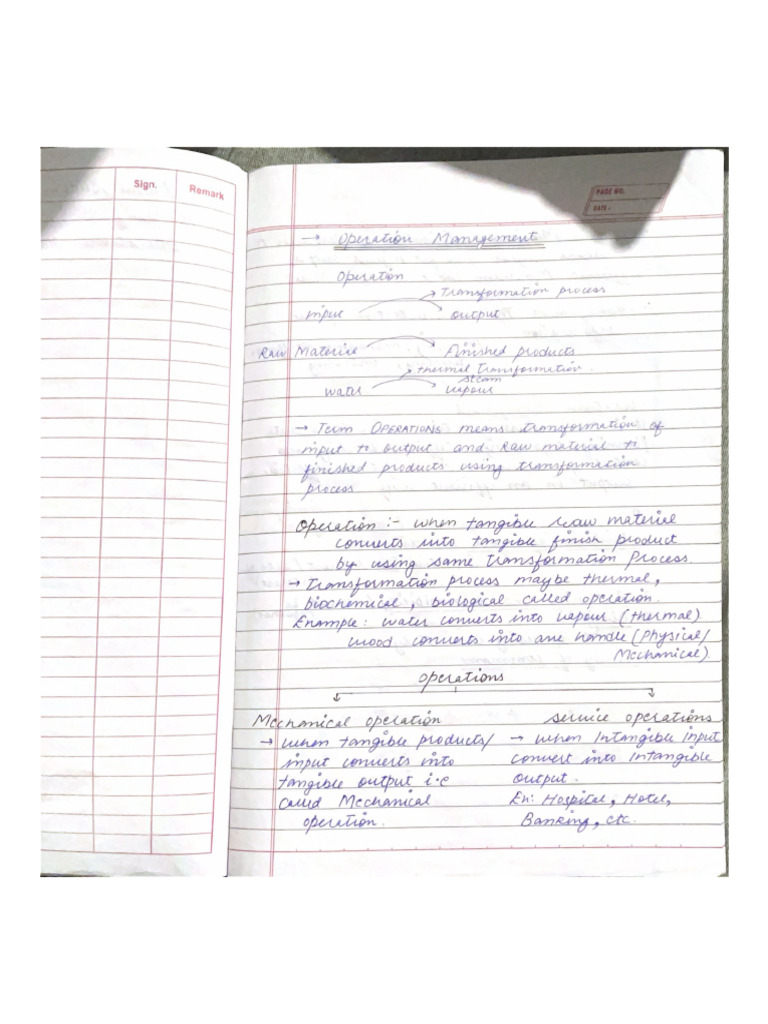 Sign.
Remark
PAGE NO.
DATE -
→ Operation Management
Operation
→ Transformation process
input output
Raw Material Finished products
→ thermal Transformation
steam
water vapour
→ Term OPERATIONS means transformation of
input to output and Raw material to
finished products using transformation
process
Operation :- when tangible raw material
converts into tangible finish product
by using same transformation Process.
→ Transformation process maybe thermal,
biochemical, biological called operation.
Example: water converts into vapour (thermal)
wood converts into axe handle (Physical/
Mechanical).
Operations
Mechanical operation
→ when tangible products/
input converts into
tangible output i.e
Called Mechanical
operation.
service operations
→ when Intangible input
convert into Intangible
Output.
Ex: Hospital, Hotel,
Banking, etc.